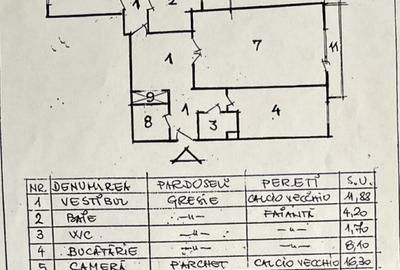 1
2
1
7
11
9
1
8
3
4
NR. DENUMIREA PARDOSELI PERETI S.U.
1 VESTIBUL GRESIE CALCIO VECCHIO 11,88
2 BAIE -"- FAIANTĂ 4,20
3 WC -"- -"- 1,70
4 BUCĂTĂRIE -"- -"- 8,10
5 CAMERĂ PARCHET CALCIO VECCHIO 16,30